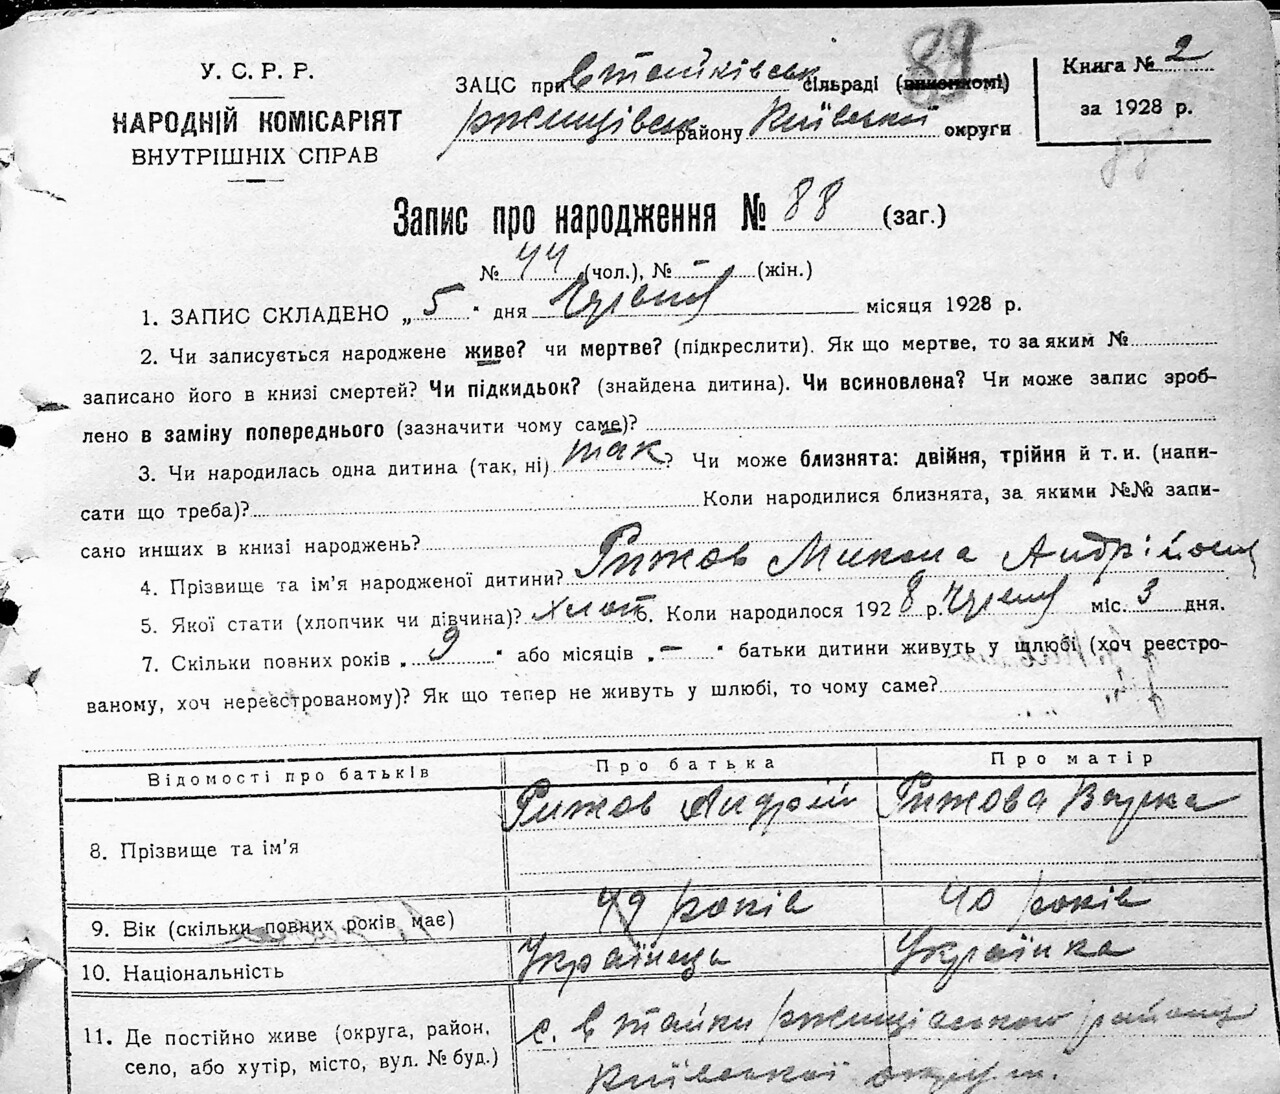 У. С. Р. Р.
НАРОДНІЙ КОМІСАРІЯТ
ВНУТРІШНІХ СПРАВ
89
ЗАЦС при сільраді (виконкомі)
Ржищівськ району Київської округи
Книга № 2
за 1928 р.
Запис про народження № 88 (заг.)
№ 44 (чол.), № – (жін.)
1. ЗАПИС СКЛАДЕНО „ 5 " дня місяця 1928 р.
2. Чи записується народжене живе? чи мертве? (підкреслити). Як що мертве, то за яким №
записано його в книзі смертей? Чи підкидьок? (знайдена дитина). Чи всиновлена? Чи може запис зроб-
лено в заміну попереднього (зазначити чому саме)?
3. Чи народилась одна дитина (так, ні) так ? Чи може близнята: двійня, трійня й т. и. (напи-
сати що треба)? Коли народилися близнята, за якими №№ запи-
сано инших в книзі народжень?
4. Прізвище та ім'я народженої дитини? Рижов Микола Андрійов
5. Якої стати (хлопчик чи дівчина)? хлоп 6. Коли народилося 192 8 р. міс. 3 дня.
7. Скільки повних років „ 9 " або місяців „ – " батьки дитини живуть у шлюбі (хоч реєстро-
ваному, хоч нереєстрованому)? Як що тепер не живуть у шлюбі, то чому саме?
Відомості про батьків Про батька Про матір
8. Прізвище та ім'я Рижов Андрій Рижова
9. Вік (скільки повних років має) 49 років 40 років
10. Національність Українець Українка
11. Де постійно живе (округа, район,
село, або хутір, місто, вул. № буд.)
с. Стайки Ржищівського району
Київської округи.